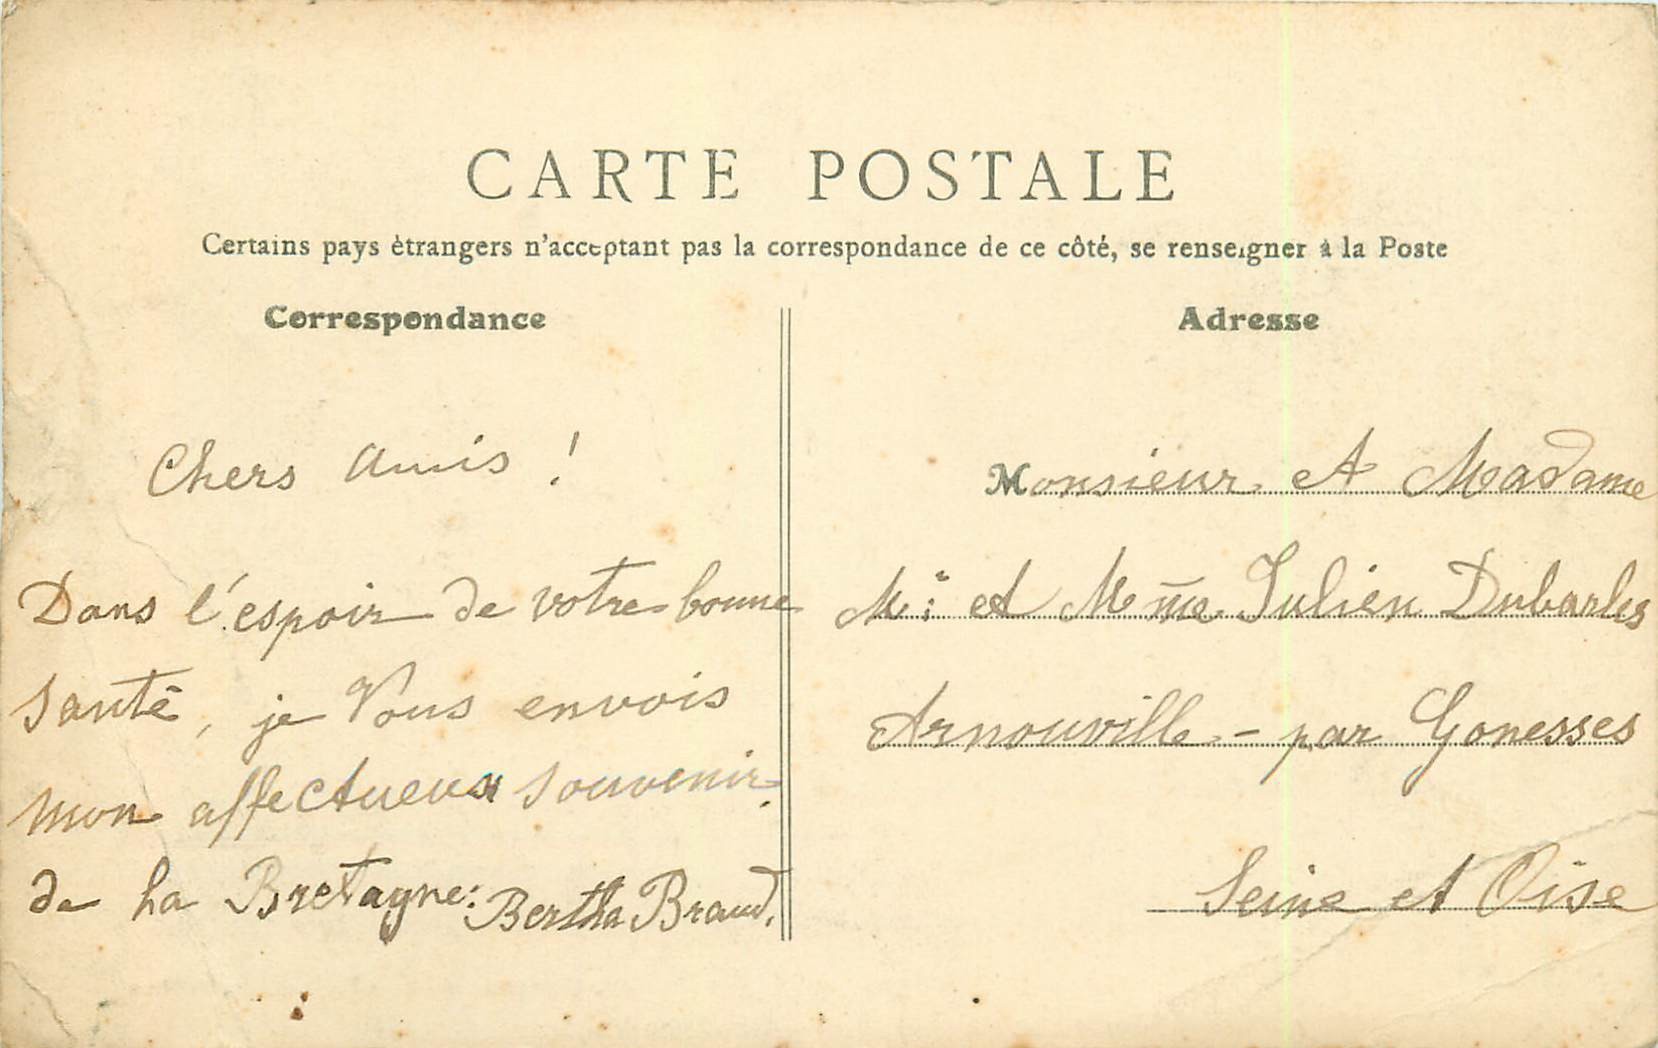 CARTE POSTALE
Certains pays étrangers n'acceptant pas la correspondance de ce côté, se renseigner à la Poste
Correspondance
Chers Amis !
Dans l'espoir de votre bonne
Santé, je Vous envois
mon affectueux Souvenir
de la Bretagne: Bertha Braud.
Adresse
Monsieur et Madame
Mr et Mme Julien Dubarles
Arnouville - par Gonesses
Seine et Oise